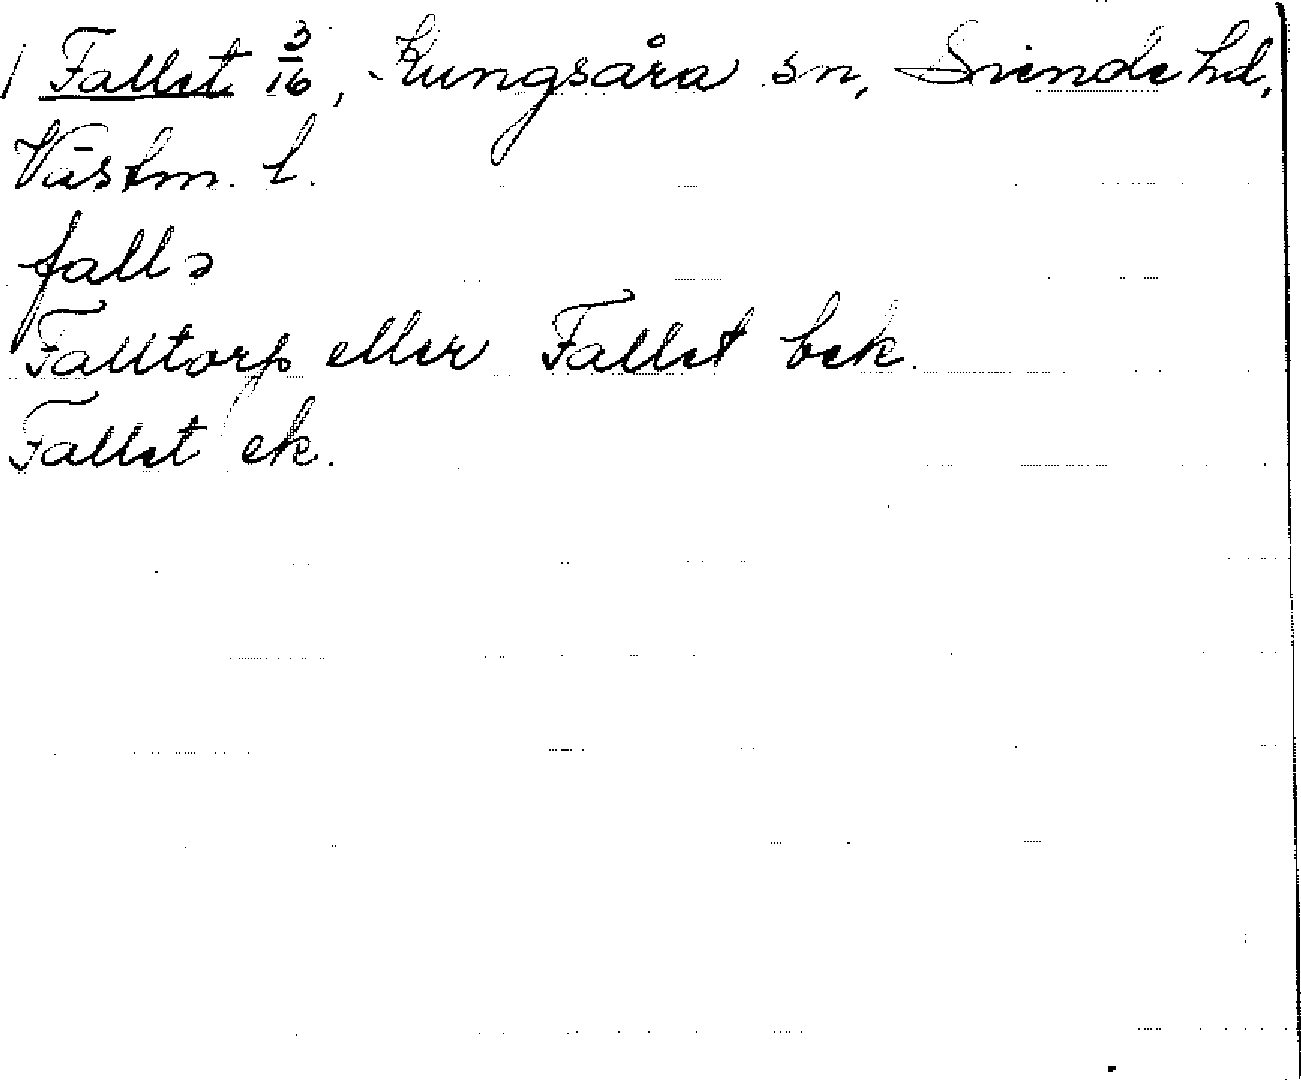 1 Fallet 3/16, Kungsåra sn, Siende hd,
Västm. l.
fallə
Falltorp eller Fallet bek.
Fallet ek.